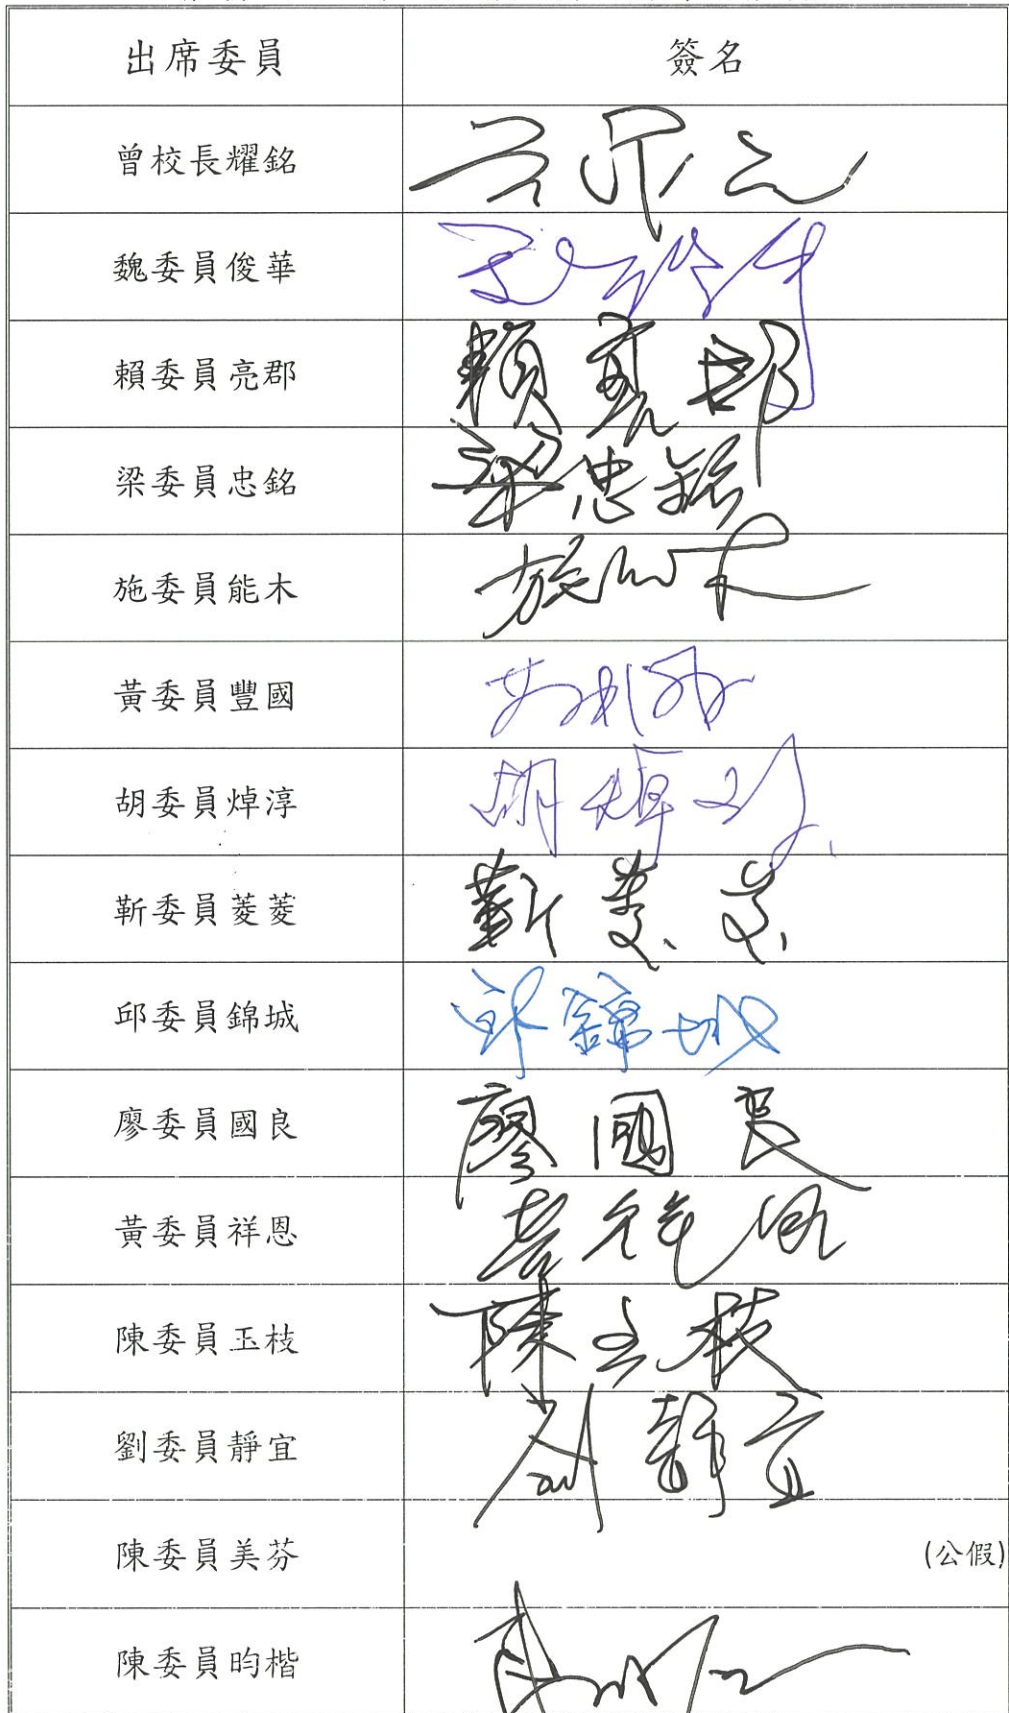 出席委員 簽名
曾校長耀銘
魏委員俊華
賴委員亮郡 賴亮郡
梁委員忠銘 梁忠銘
施委員能木 施能木
黃委員豐國
胡委員焯淳 胡焯淳
靳委員菱菱 靳菱菱
邱委員錦城 邱錦城
廖委員國良 廖國良
黃委員祥恩
陳委員玉枝 陳玉枝
劉委員靜宜 劉靜宜
陳委員美芬 (公假)
陳委員昀楷